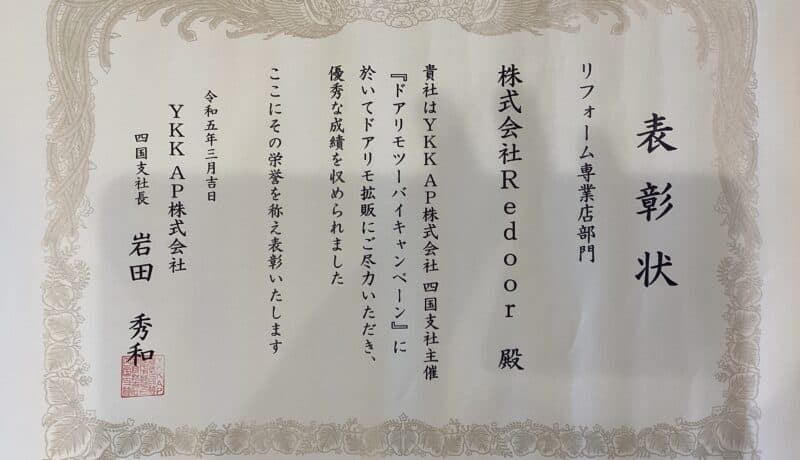 表彰状
リフォーム専業店部門
株式会社Redoor 殿
貴社はYKK AP株式会社 四国支社主催
『ドアリモツーバイキャンペーン』に
於いてドアリモ拡販にご尽力いただき、
優秀な成績を収められました
ここにその栄誉を称え表彰いたします
令和五年三月吉日
YKK AP株式会社
四国支社長 岩田 秀和